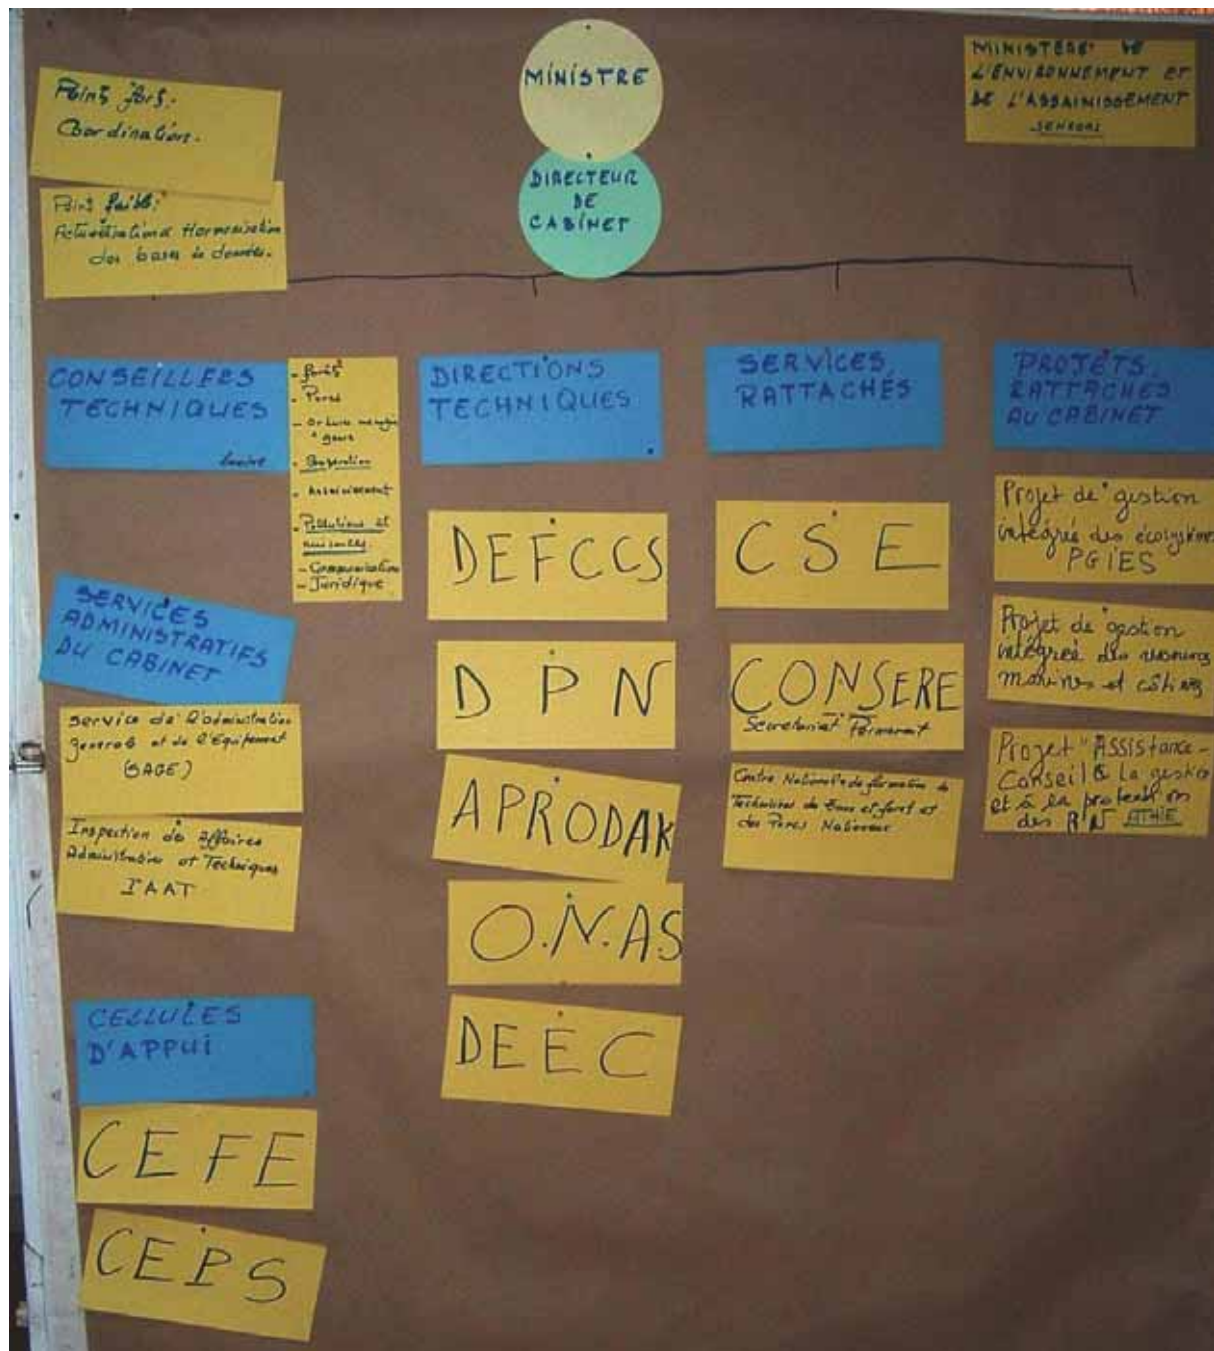 MINISTRE
DIRECTEUR
DE
CABINET
MINISTERE DE
L'ENVIRONNEMENT ET
DE L'ASSAINISSEMENT
Point fort:
Coordination.
Point faible:
Actualisation & Harmonisation
des bases de données.
CONSEILLERS
TECHNIQUES
- forêt
- Parcs
- Coopération
- Assainissement
- Pollutions et
nuisances
- Communication
- Juridique
SERVICES
ADMINISTRATIFS
DU CABINET
Service de l'administration
general et de l'Equipement
(SAGE)
Inspection des Affaires
Administratives et Techniques
IAAT
CELLULES
D'APPUI
CEFE
CEPS
DIRECTIONS
TECHNIQUES
DEFCCS
DPN
APRODAK
O.N.AS
DEEC
SERVICES
RATTACHES
CSE
CONSERE
Secretariat Permanent
Centre National de formation de
Techniciens des Eaux et foret et
des Parcs Nationaux
PROJETS
RATTACHES
AU CABINET
Projet de gestion
intégrée des écosystèmes
PGIES
Projet de gestion
intégrée des ressources
marines et côtières
Projet "Assistance-
Conseil à la gestion
et à la protection
des RN ATHIE